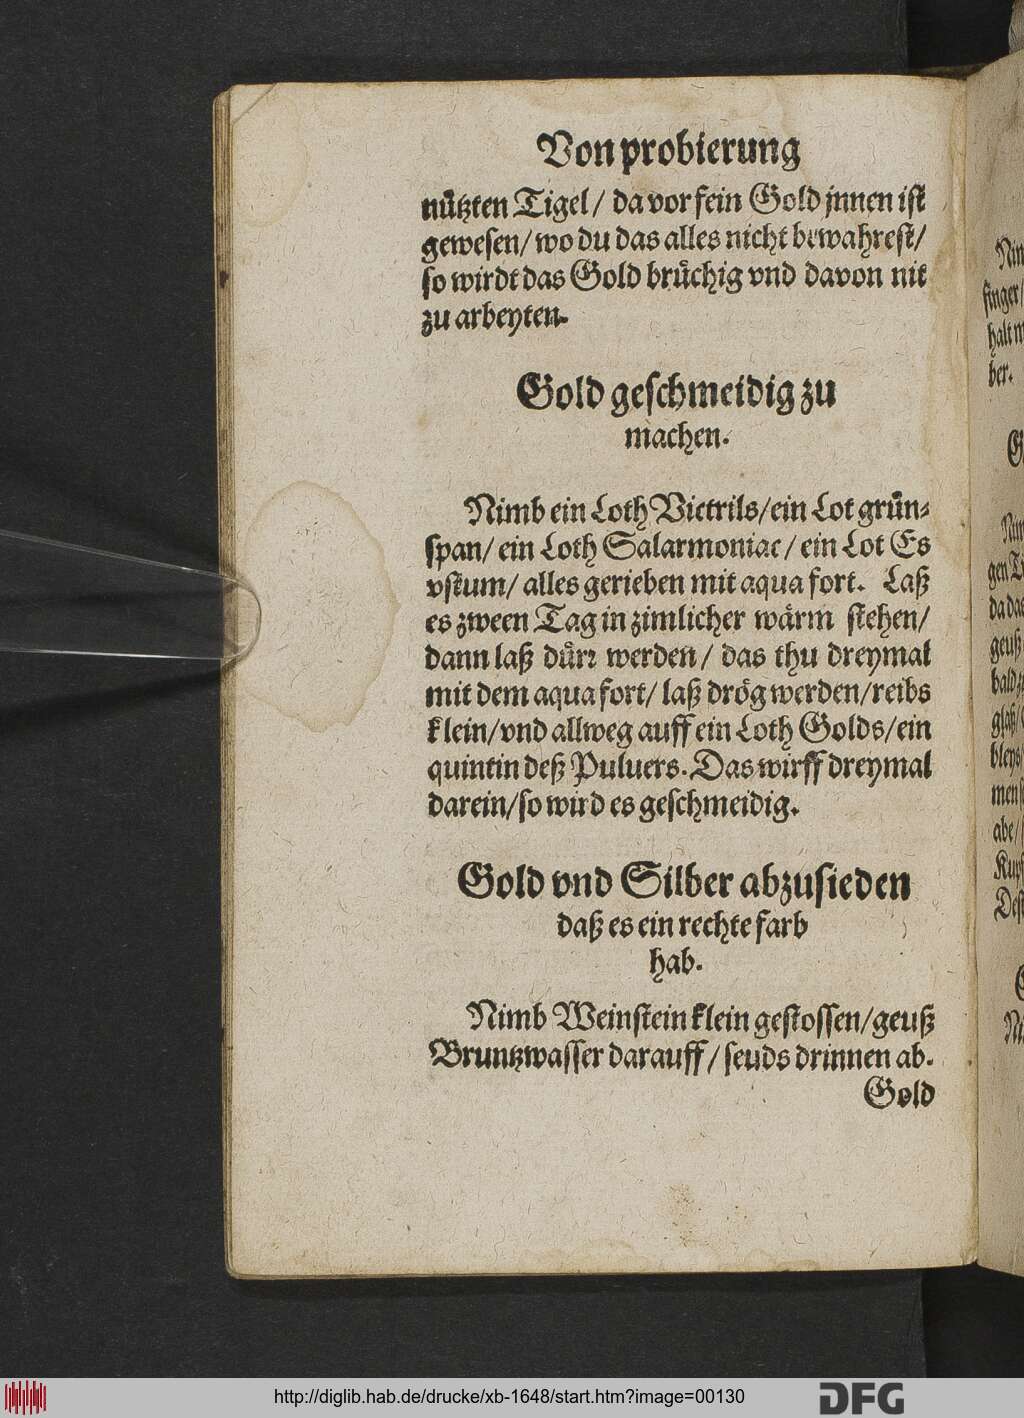 Von probierung
nuͤtzten Tigel / da vor fein Gold jnnen iſt
geweſen / wo du das alles nicht bewahreſt /
ſo wirdt das Gold bruͤchig vnd davon nit
zu arbeyten.
Gold geſchmeidig zu
machen.
Nimb ein Loth Victrils / ein Lot gruͤn⸗
ſpan / ein Loth Salarmoniac / ein Lot Es
vſtum / alles gerieben mit aqua fort. Laß
es zween Tag in zimlicher waͤrm ſtehen /
dann laß duͤrꝛ werden / das thu dreymal
mit dem aqua fort / laß droͤg werden / reibs
klein / vnd allweg auff ein Loth Golds / ein
quintin deß Puluers. Das wirff dreymal
darein / ſo wird es geſchmeidig.
Gold vnd Silber abzuſieden
daß es ein rechte farb
hab.
Nimb Weinſtein klein geſtoſſen / geuß
Bruntzwaſſer darauff / ſeuds drinnen ab.
Gold
http://diglib.hab.de/drucke/xb-1648/start.htm?image=00130
DFG